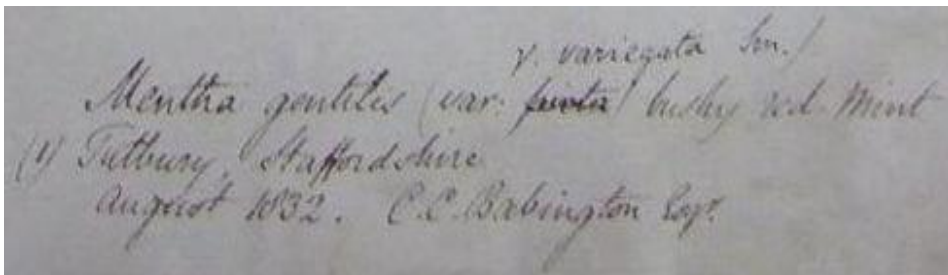 γ. variegata Sm.)
Mentha gentilis (var: bushy red Mint
(1) Tutbury, Staffordshire
August 1832. C.C. Babington Esqr.